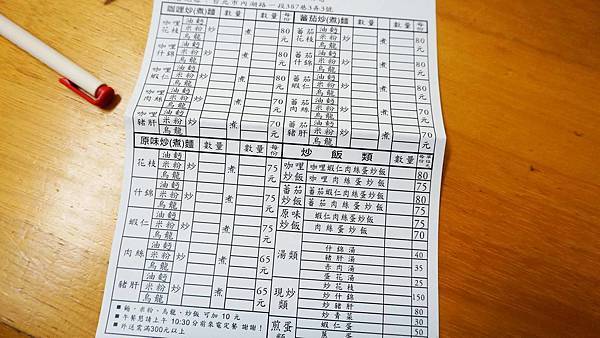 台北市內湖路一段387巷3弄3號
咖哩炒(煮)麵 數量 數量 每份
咖哩花枝 油麵 米粉 烏龍 炒 煮 80元
咖哩什錦 油麵 米粉 烏龍 炒 煮 80元
咖哩蝦仁 油麵 米粉 烏龍 炒 煮 80元
咖哩肉絲 油麵 米粉 烏龍 炒 煮 70元
咖哩豬肝 油麵 米粉 烏龍 炒 煮 70元
蕃茄炒(煮)麵 數量 數量 每份
蕃茄花枝 油麵 米粉 烏龍 炒 煮 80元
蕃茄什錦 油麵 米粉 烏龍 炒 煮 80元
蕃茄蝦仁 油麵 米粉 烏龍 炒 煮 80元
蕃茄肉絲 油麵 米粉 烏龍 炒 煮 70元
蕃茄豬肝 油麵 米粉 烏龍 炒 煮 70元
原味炒(煮)麵 數量 數量 每份
花枝 油麵 米粉 烏龍 炒 煮 75元
什錦 油麵 米粉 烏龍 炒 煮 75元
蝦仁 油麵 米粉 烏龍 炒 煮 75元
肉絲 油麵 米粉 烏龍 炒 煮 65元
豬肝 油麵 米粉 烏龍 炒 煮 65元
■ 麵、米粉、烏龍、炒飯 可加 10 元
■ 午餐懇請上午 10:30分前來電定餐 謝謝！
■ 外送需滿300元以上
炒飯類 數量 每份
咖哩炒飯 咖哩蝦仁肉絲蛋炒飯 80
咖哩肉絲蛋炒飯 75
蕃茄炒飯 蕃茄蝦仁肉絲蛋炒飯 80
蕃茄肉絲蛋炒飯 75
原味炒飯 蝦仁肉絲蛋炒飯 75
肉絲蛋炒飯 70
湯類 什錦湯 40
豬肝湯 35
赤肉湯
蛋花湯 25
現炒類 炒花枝 150
炒什錦
炒豬肝
炒青菜
煎蛋類 蝦仁蛋 50